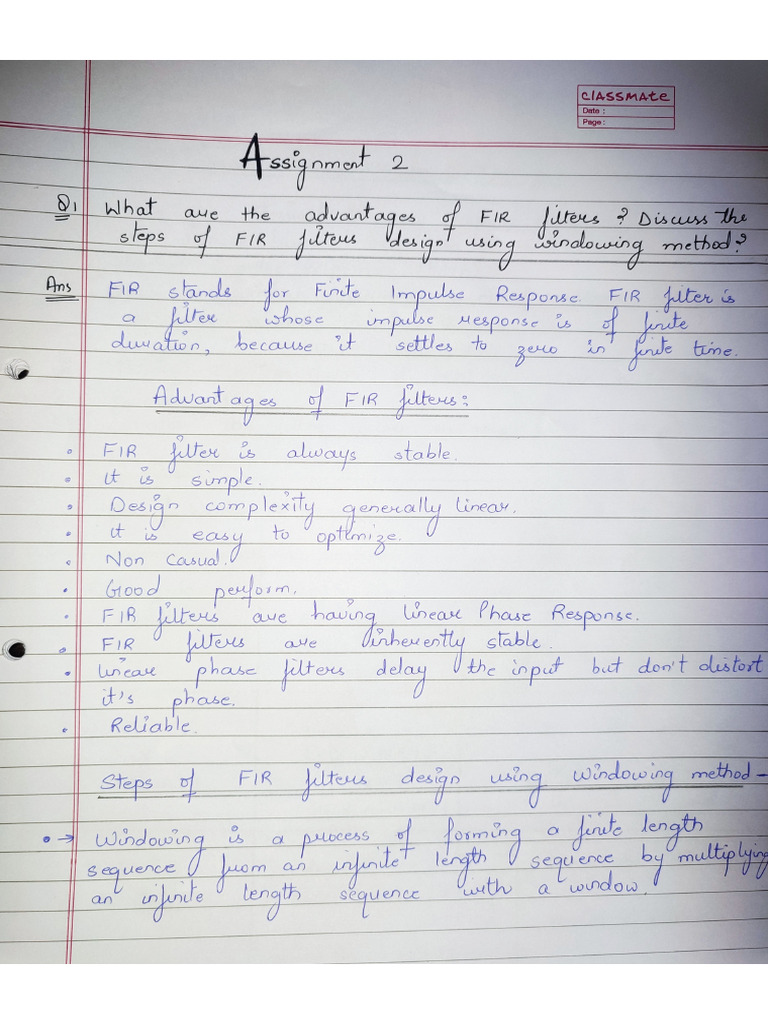 classmate
Date :
Page :
Assignment 2
Q1 What are the advantages of FIR filters ? Discuss the
steps of FIR filters design using windowing method?
Ans FIR stands for Finite Impulse Response. FIR filter is
a filter whose impulse response is of finite
duration, because it settles to zero in finite time.
Advantages of FIR filters:
• FIR filter is always stable.
• It is simple.
• Design complexity generally linear.
• It is easy to optimize.
• Non Casual.
• Good perform.
• FIR filters are having linear Phase Response.
• FIR filters are inherently stable.
• linear phase filters delay the input but don't distort
it's phase.
• Reliable.
Steps of FIR filters design using windowing method -
• → Windowing is a process of forming a finite length
sequence from an infinite length sequence by multiplying
an infinite length sequence with a window.